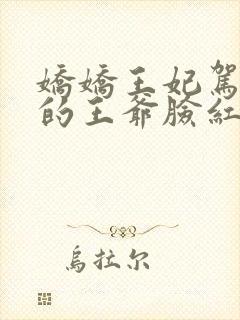 嬌嬌王妃駕
的王爺臉紅
烏拉尔